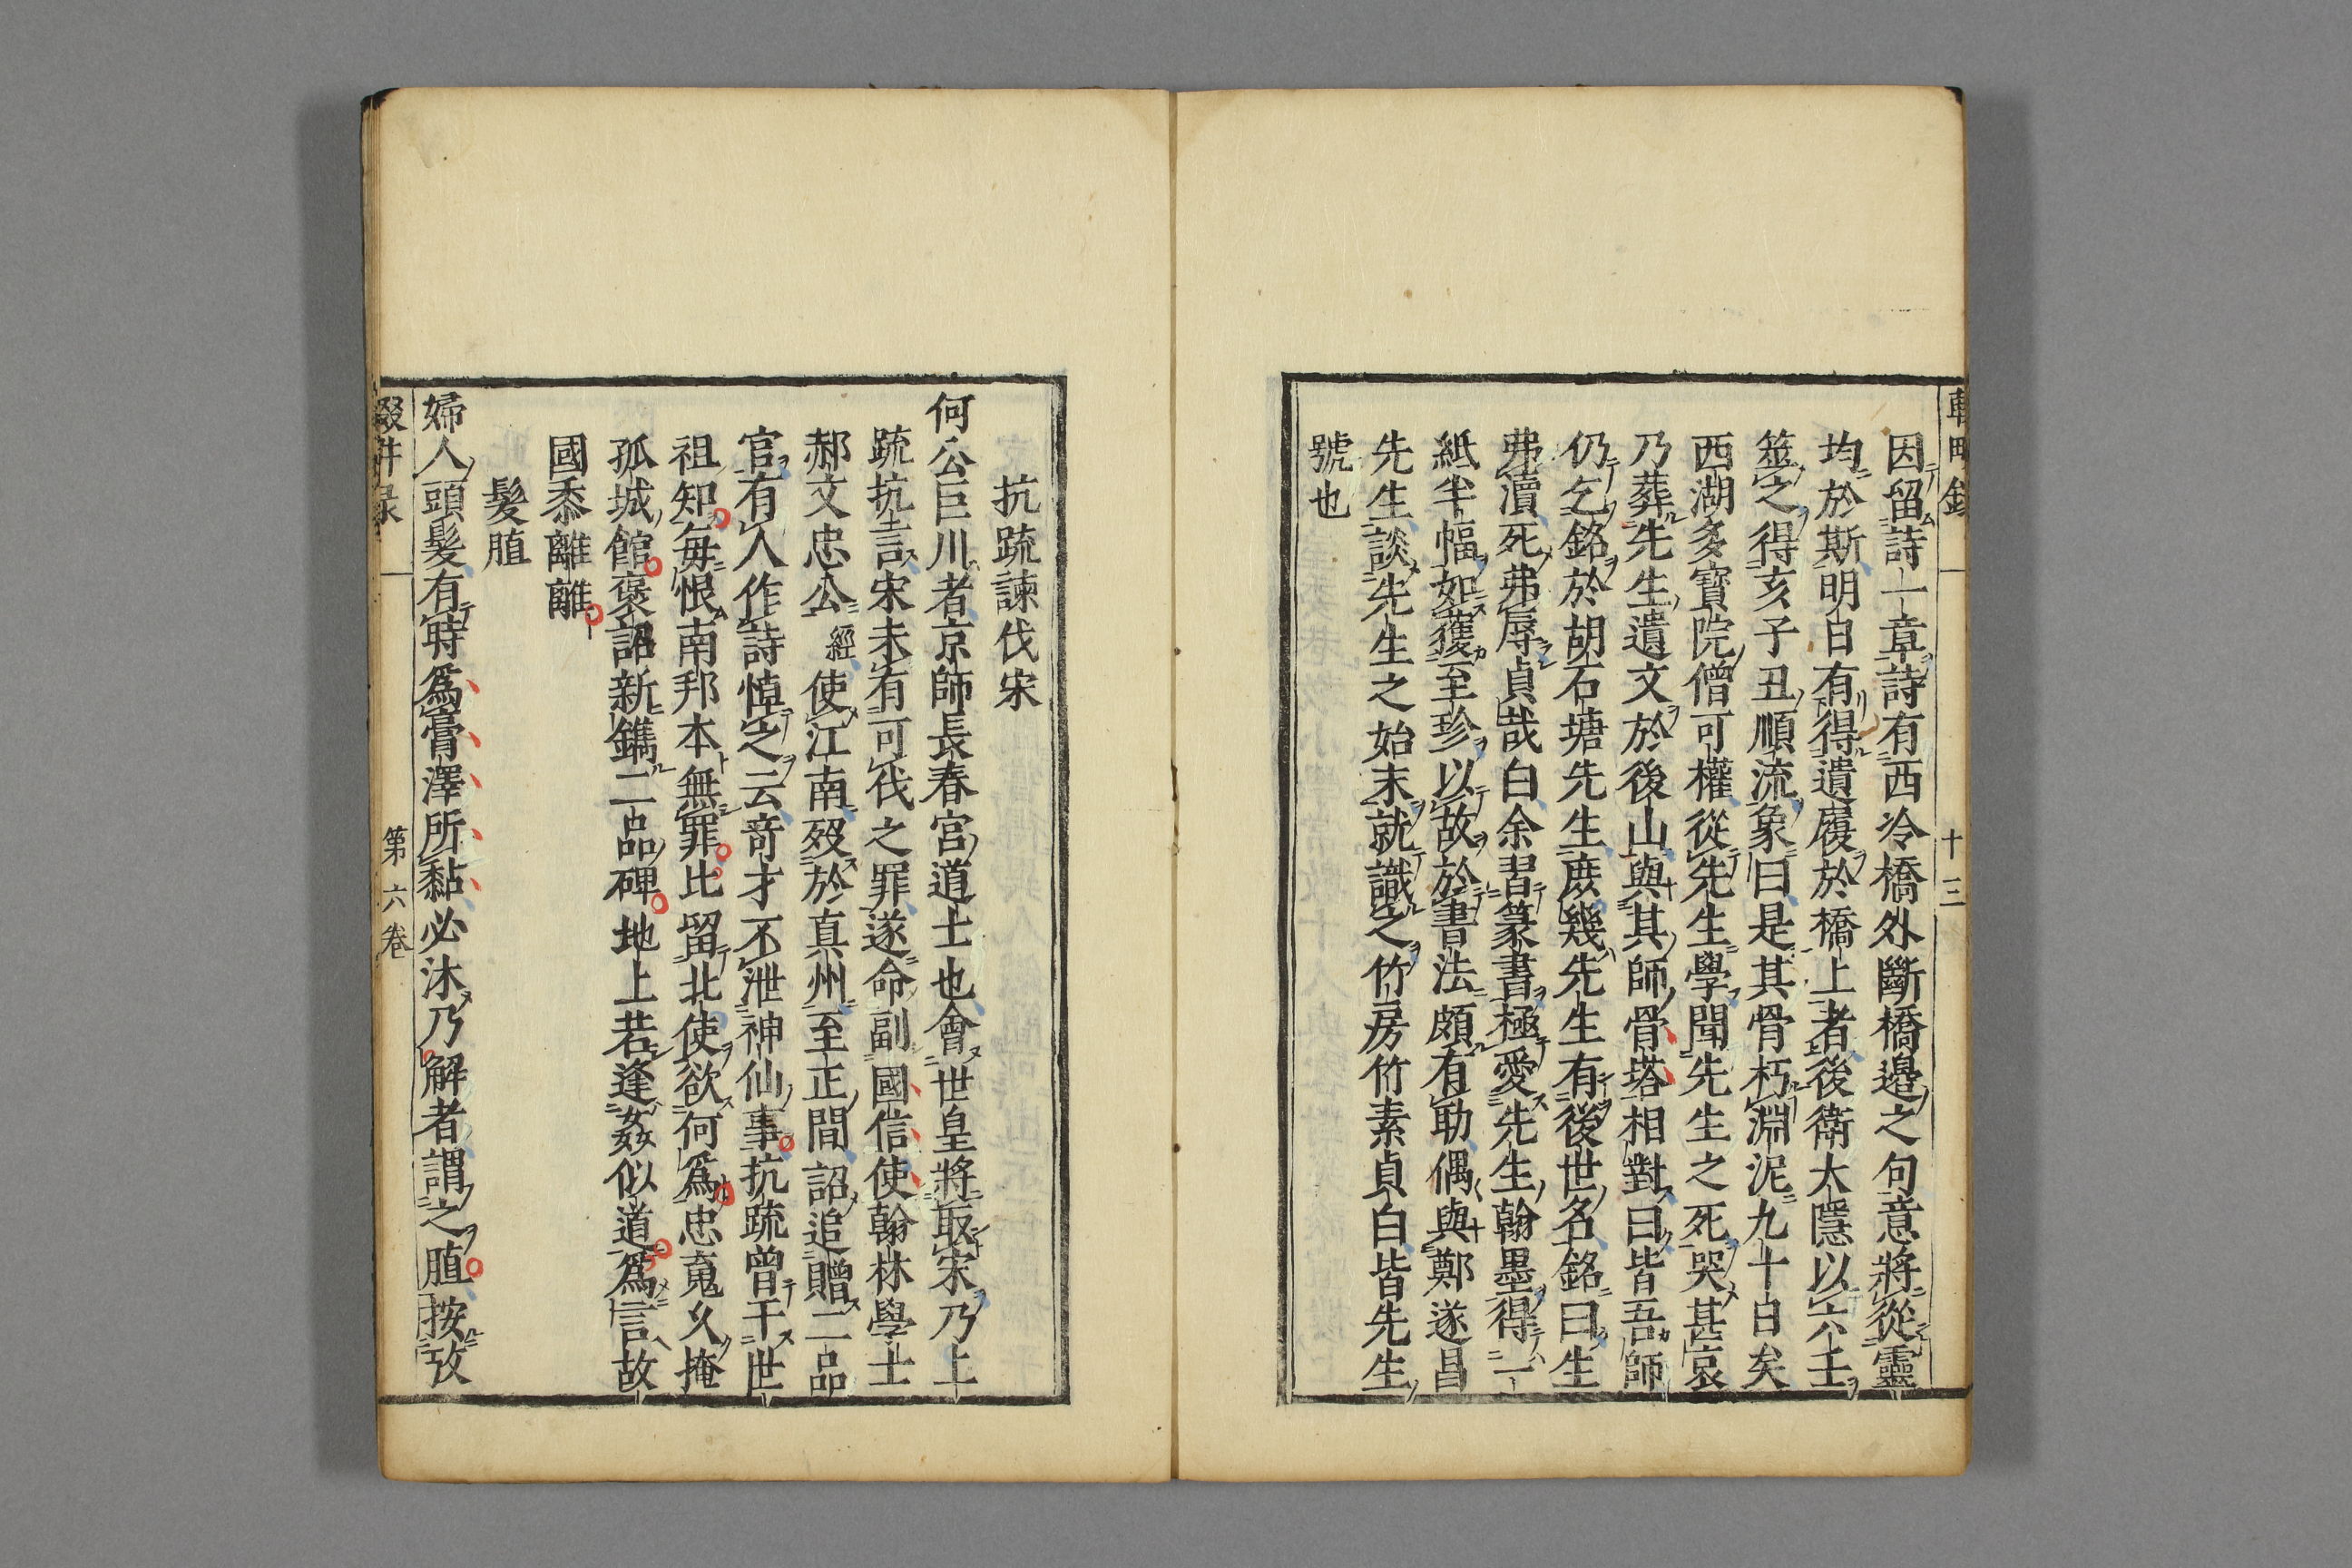 因留詩一章詩有西冷橋外斷橋邉之句意將從靈
均於斯明日有得遺履於橋上者後衛大隱以六壬
筮之得亥子丑順流象曰是其骨朽淵泥九十日矣
西湖多寳院僧可權從先生學聞先生之死哭甚哀
乃葬先生遺文於後山與其師骨塔相對曰皆吾師
仍乞銘於胡石塘先生庶幾先生有後世名銘曰生
弗瀆死弗辱貞哉白余習篆書極愛先生翰墨得一
紙半幅如獲至珍以故於書法頗有助偶與鄭遂昌
先生談先生之始末就識之竹房竹素貞白皆先生
號也
抗疏諫伐宋
何公巨川者京師長春宮道士也會世皇將取宋乃上
疏抗言宋未有可伐之罪遂命副國信使翰林學士
郝文忠公經使江南歿於真州至正間詔追贈二品
官有人作詩悼之云奇才不泄神仙事抗疏曾干世
祖知每恨南邦本無罪比留北使欲何爲忠䰟乆掩
孤城館褒詔新鐫二品碑地上若逢姦似道爲言故
國黍離離
髮䐈
婦人頭髮有時爲膏澤所黏必沐乃解者謂之䐈按攷
第六卷